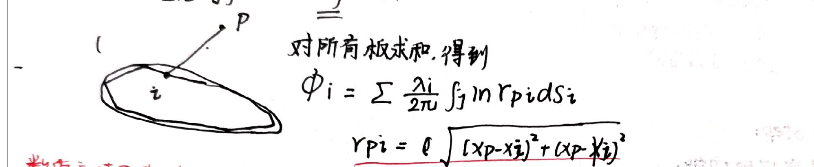 P
i
对所有板求和,得到
Φi = Σ λi/2π ∫j ln rpi dsi
rpi = √((xp-xi)²+(xp-xi)²